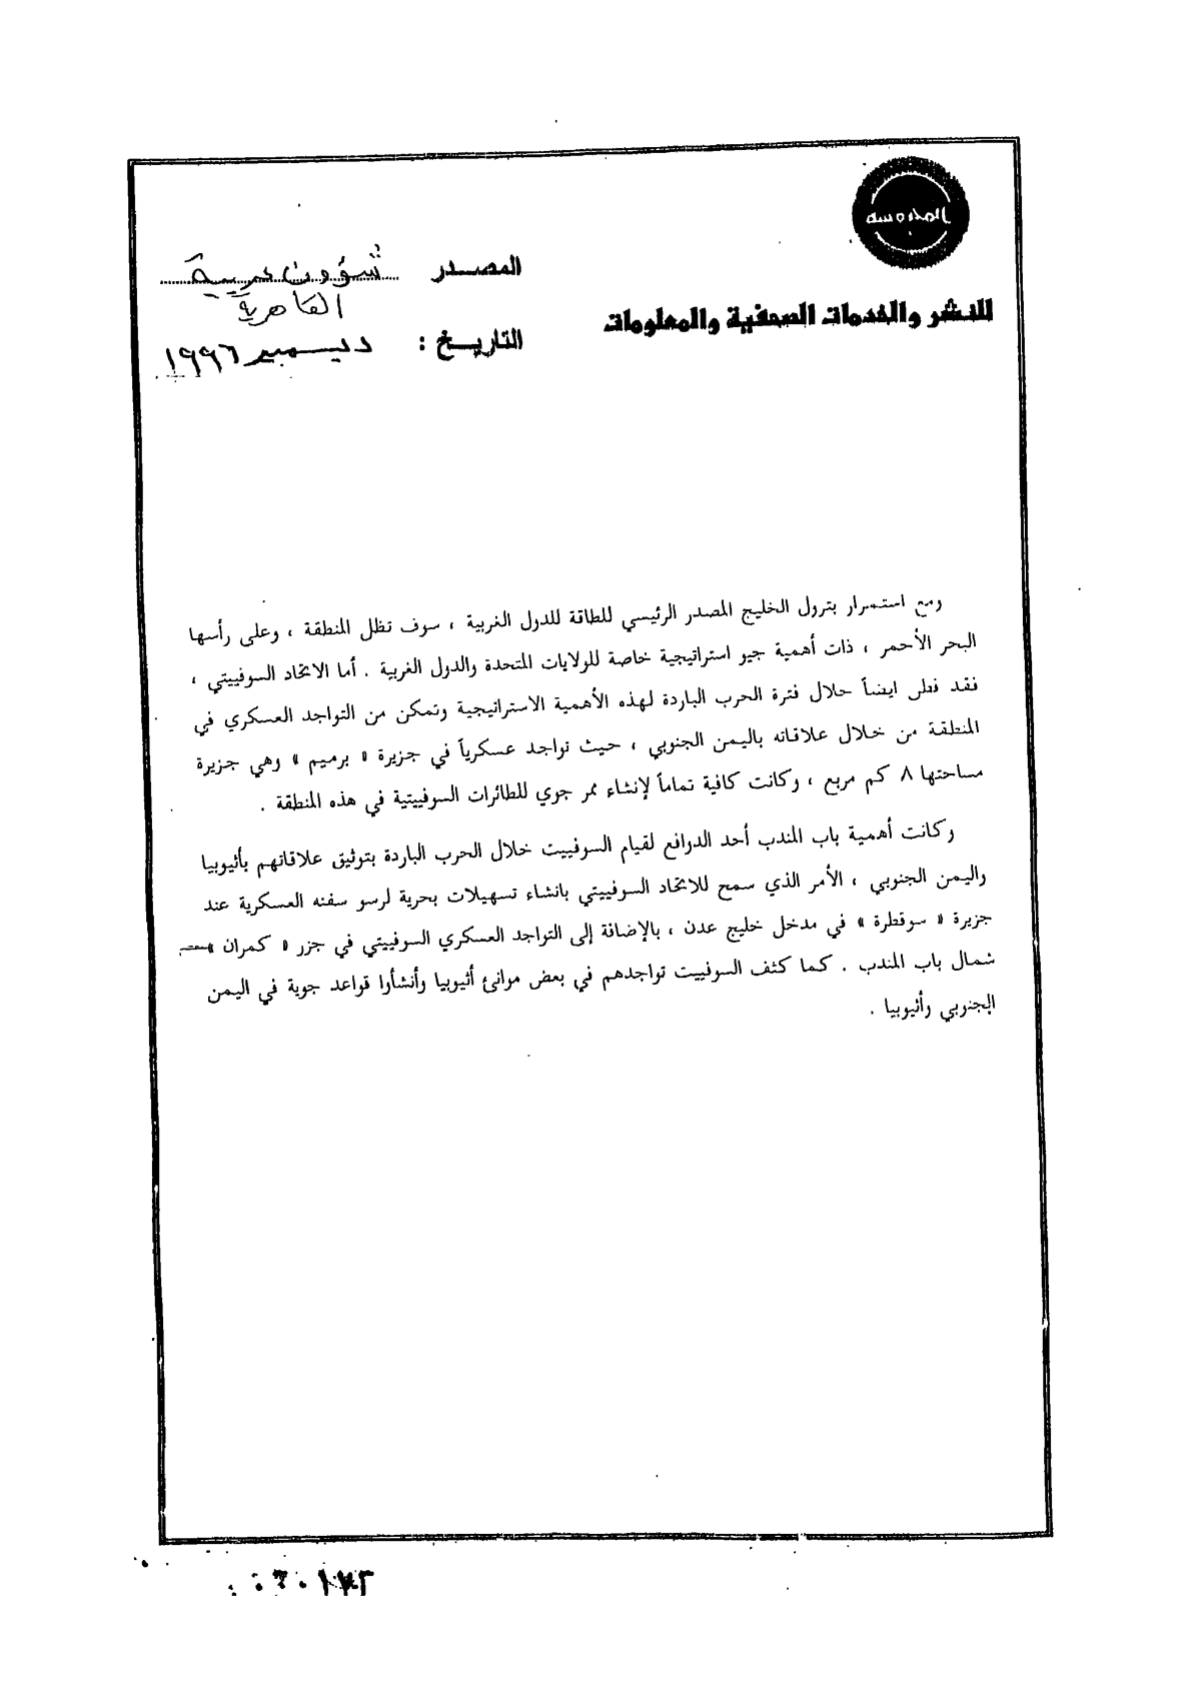 المحروسة
للنشر والخدمات الصحفية والمعلومات
المصدر شؤون عربية
القاهرية
التاريخ : ديسمبر ١٩٩٦
ومع استمرار بترول الخليج المصدر الرئيسي للطاقة للدول الغربية ، سوف تظل المنطقة ، وعلى رأسها
البحر الأحمر ، ذات أهمية جيو استراتيجية خاصة للولايات المتحدة والدول الغربية . أما الاتحاد السوفييتي ،
فقد فطن ايضاً خلال فترة الحرب الباردة لهذه الأهمية الاستراتيجية وتمكن من التواجد العسكري في
المنطقة من خلال علاقاته باليمن الجنوبي ، حيث تواجد عسكرياً في جزيرة « بريم » وهي جزيرة
مساحتها ٨ كم مربع ، وكانت كافية تماماً لإنشاء ممر جوي للطائرات السوفييتية في هذه المنطقة .
وكانت أهمية باب المندب أحد الدوافع لقيام السوفييت خلال الحرب الباردة بتوثيق علاقاتهم بأثيوبيا
واليمن الجنوبي ، الأمر الذي سمح للاتحاد السوفييتي بانشاء تسهيلات بحرية لرسو سفنه العسكرية عند
جزيرة « سوقطرة » في مدخل خليج عدن ، بالإضافة إلى التواجد العسكري السوفييتي في جزر « كمران »
شمال باب المندب . كما كثف السوفييت تواجدهم في بعض موانئ أثيوبيا وأنشأوا قواعد جوية في اليمن
الجنوبي وأثيوبيا .